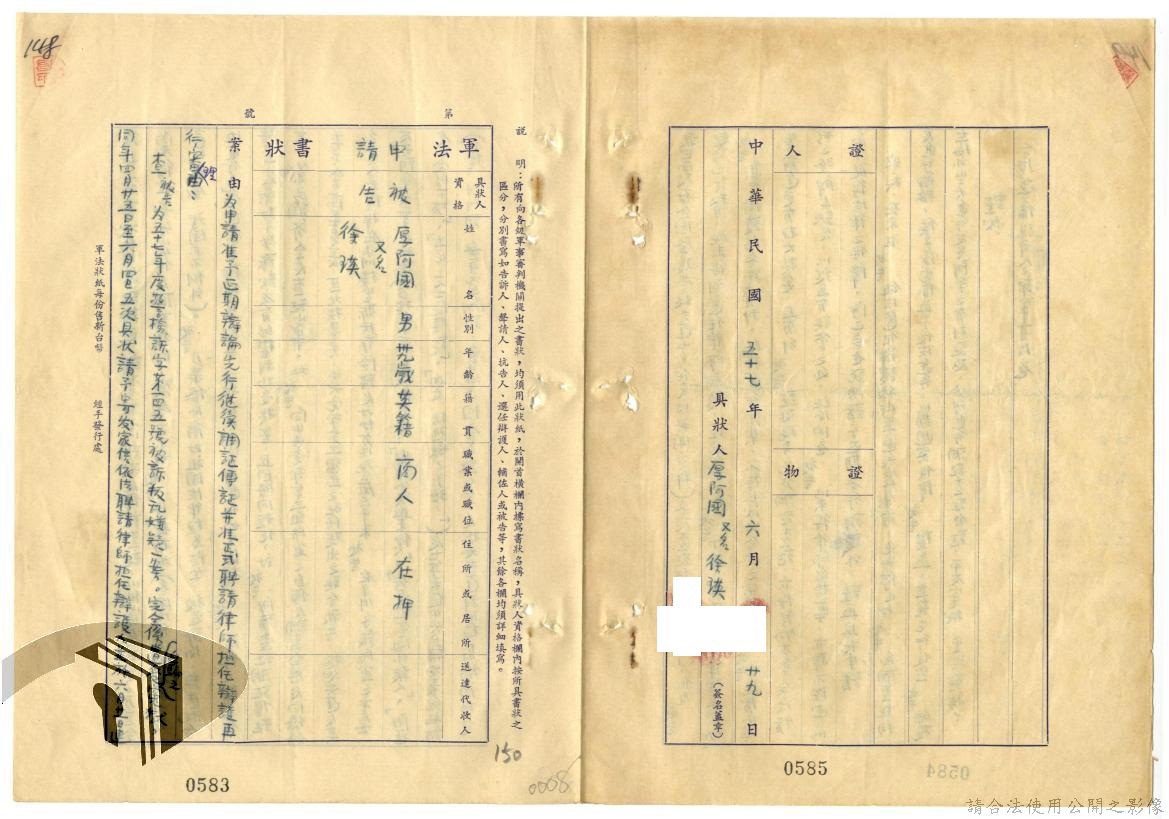 148
證人
證物
中華民國五十七年六月廿九日
具狀人厚阿國又名徐瑛
(簽名蓋章)
0585
0584
說明：所有向各級軍事審判機關提出之書狀，均須用此狀紙，於開首橫欄內標寫書狀名稱，具狀人資格欄內按所具書狀之
區分，分別書寫如告訴人、聲請人、抗告人、選任辯護人、輔佐人或被告等，其餘各欄均須詳細填寫。
第 號
軍法 申請 書狀
具狀人資格
姓名
性別
年齡
籍貫
職業或職位
住所或居所
送達代收人
被告 厚阿國 又名徐瑛 男 卅九歲 英籍 商人 在押
案由 為申請准予延期辯論先行继後調証傳証并准正式聘請律師担任辯護再
行審理
查被告為五十七年度 字第一四五號被訴叛乱嫌疑一案。完全係
同年四月廿五日至六月 五次具狀請予 家 依法聘請律師担任辯護
軍法狀紙每份售新台幣
經手發行處
0583
150
0008
請合法使用公開之影像